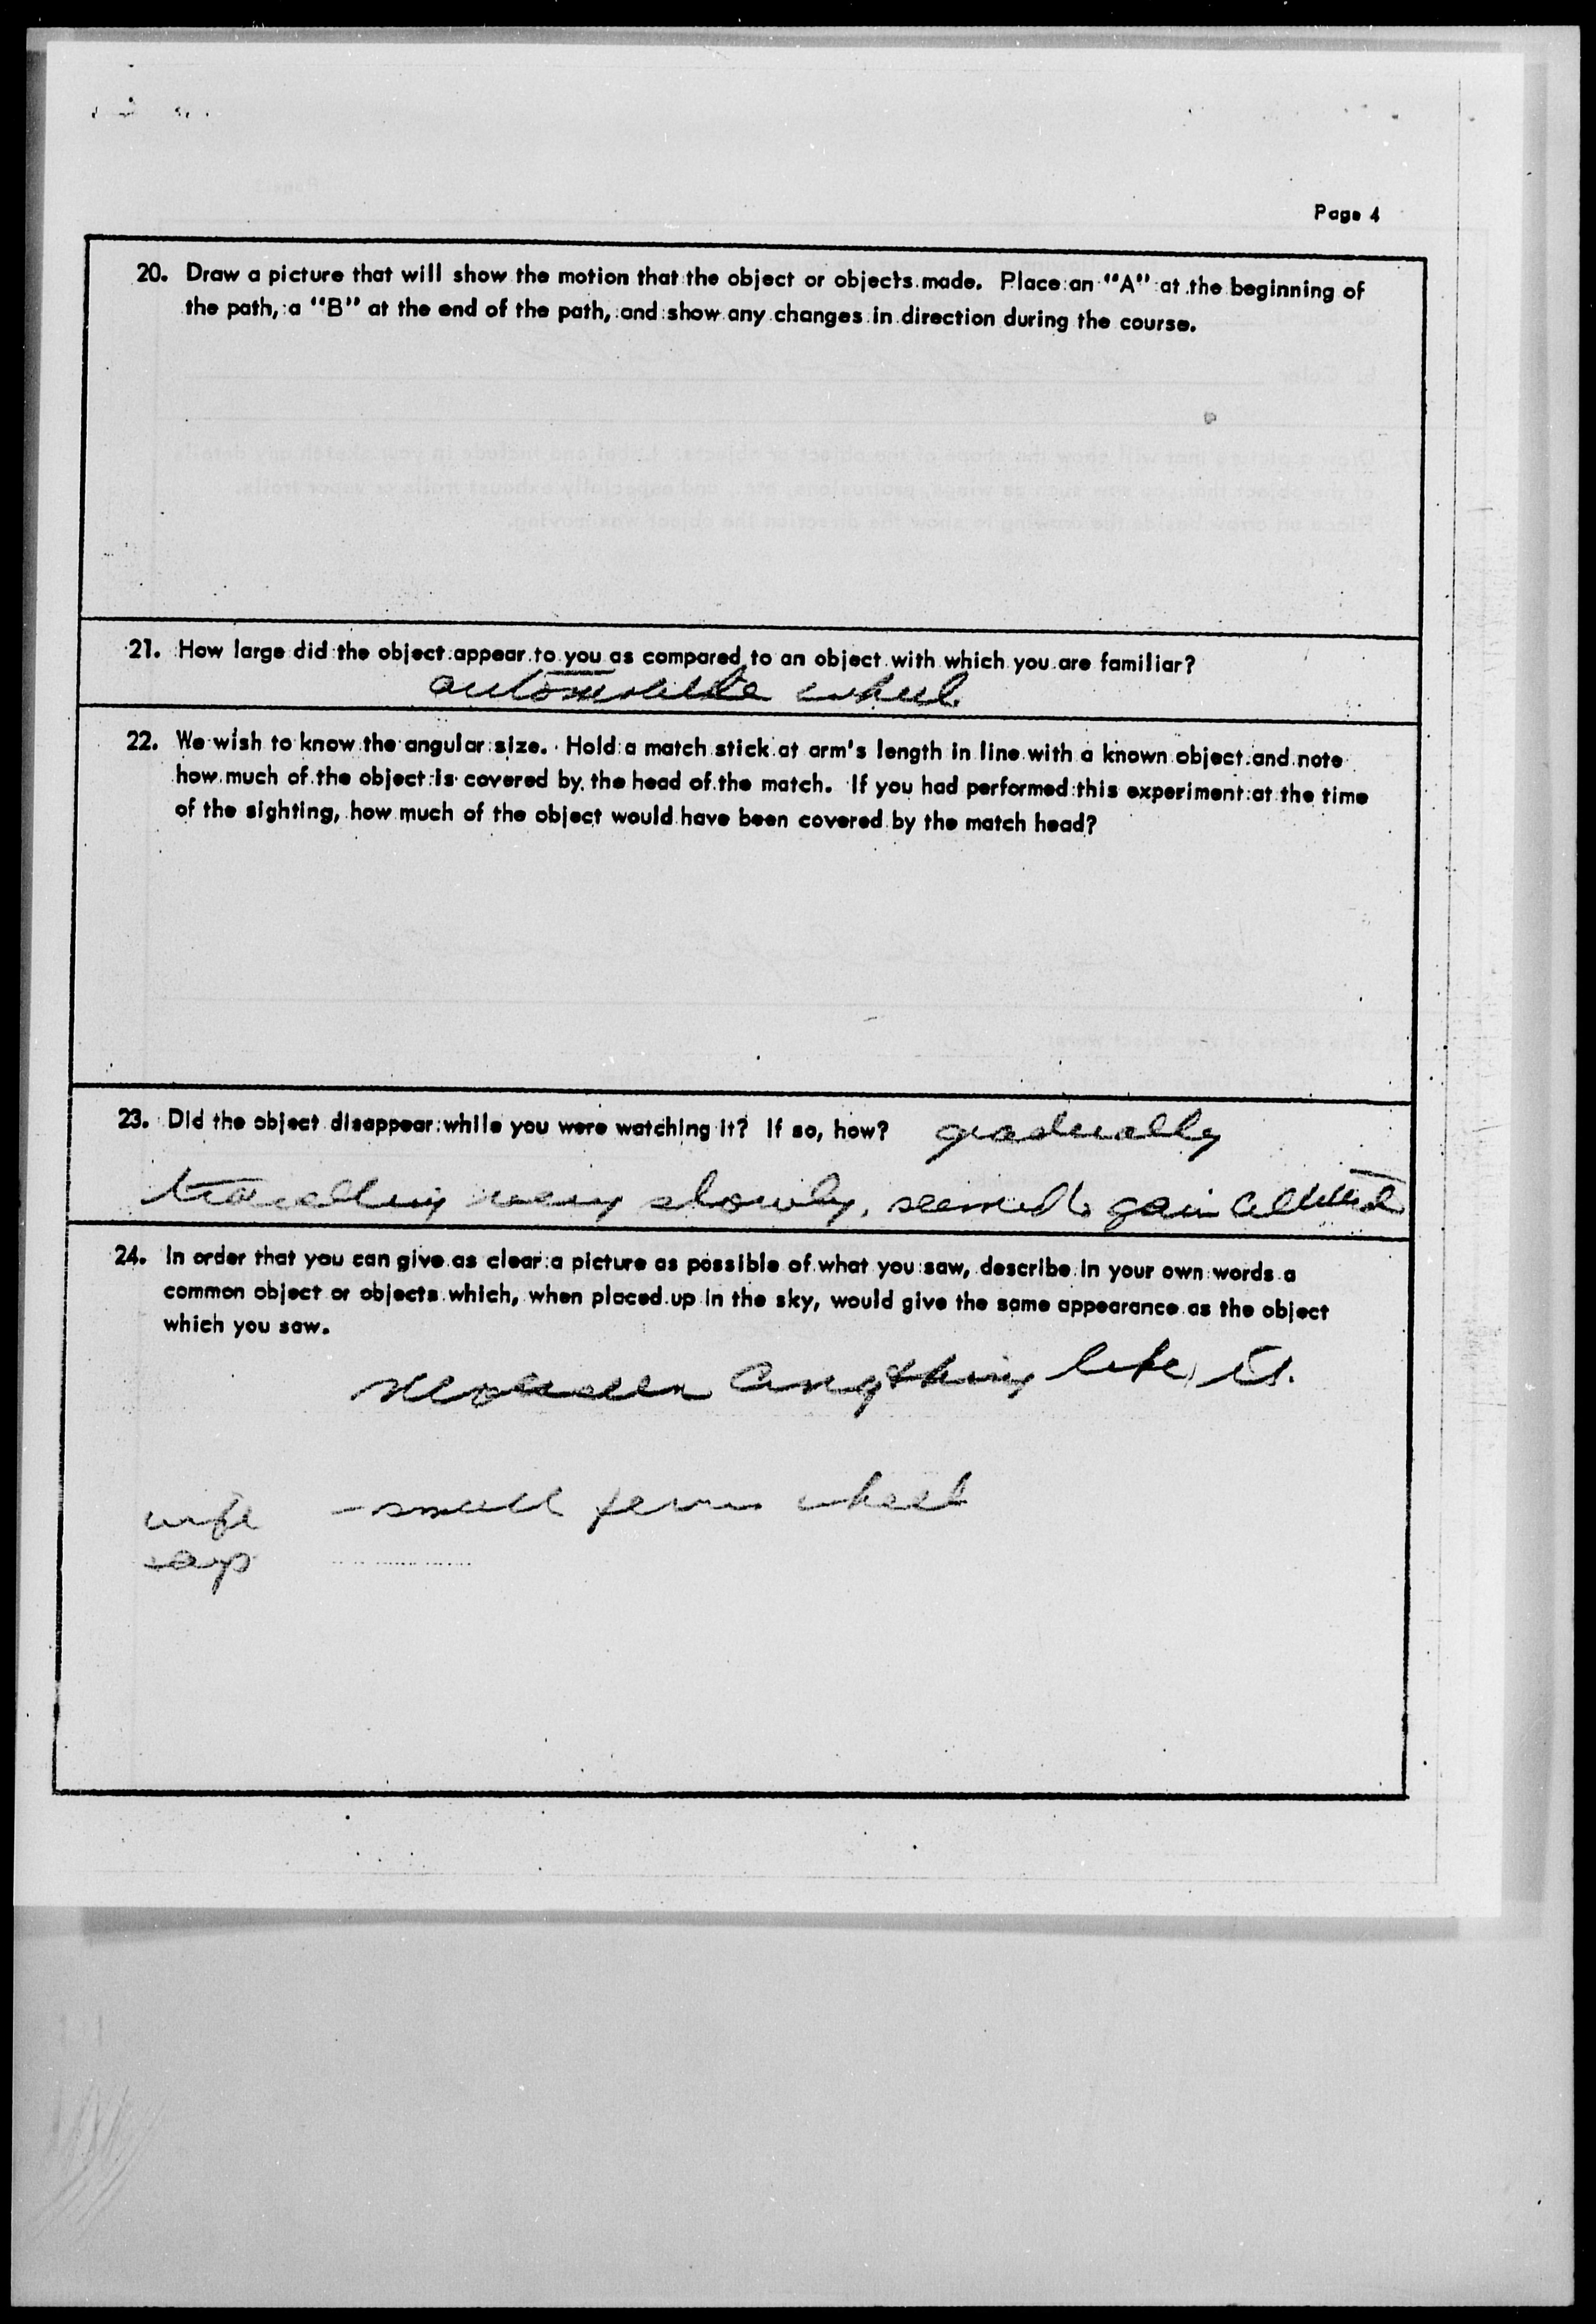 Page 4
20. Draw a picture that will show the motion that the object or objects made. Place an "A" at the beginning of
the path, a "B" at the end of the path, and show any changes in direction during the course.
21. How large did the object appear to you as compared to an object with which you are familiar?
automobile wheel
22. We wish to know the angular size. Hold a match stick at arm's length in line with a known object and note
how much of the object is covered by the head of the match. If you had performed this experiment at the time
of the sighting, how much of the object would have been covered by the match head?
23. Did the object disappear while you were watching it? If so, how? gradually
travelling very slowly, seemed to gain altitude
24. In order that you can give as clear a picture as possible of what you saw, describe in your own words a
common object or objects which, when placed up in the sky, would give the same appearance as the object
which you saw.
anything like it.
wife - small ferris wheel
says